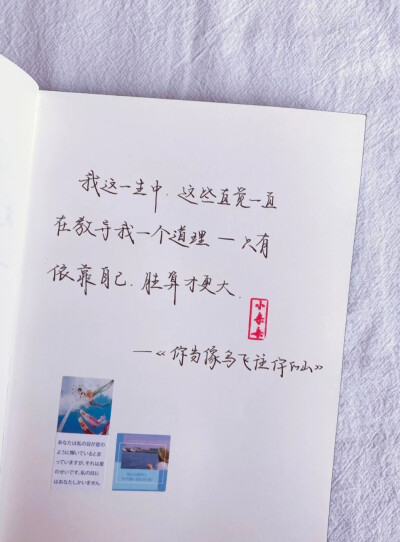 我这一生中,这些直觉一直
在教导我一个道理 — 只有
依靠自己,胜算才更大.
—《你当像鸟飞往你的山》
あなたは私の目が星の
ように輝いていると言
っていますが、それは星
のせいです。私の目に
はあなたしかいません